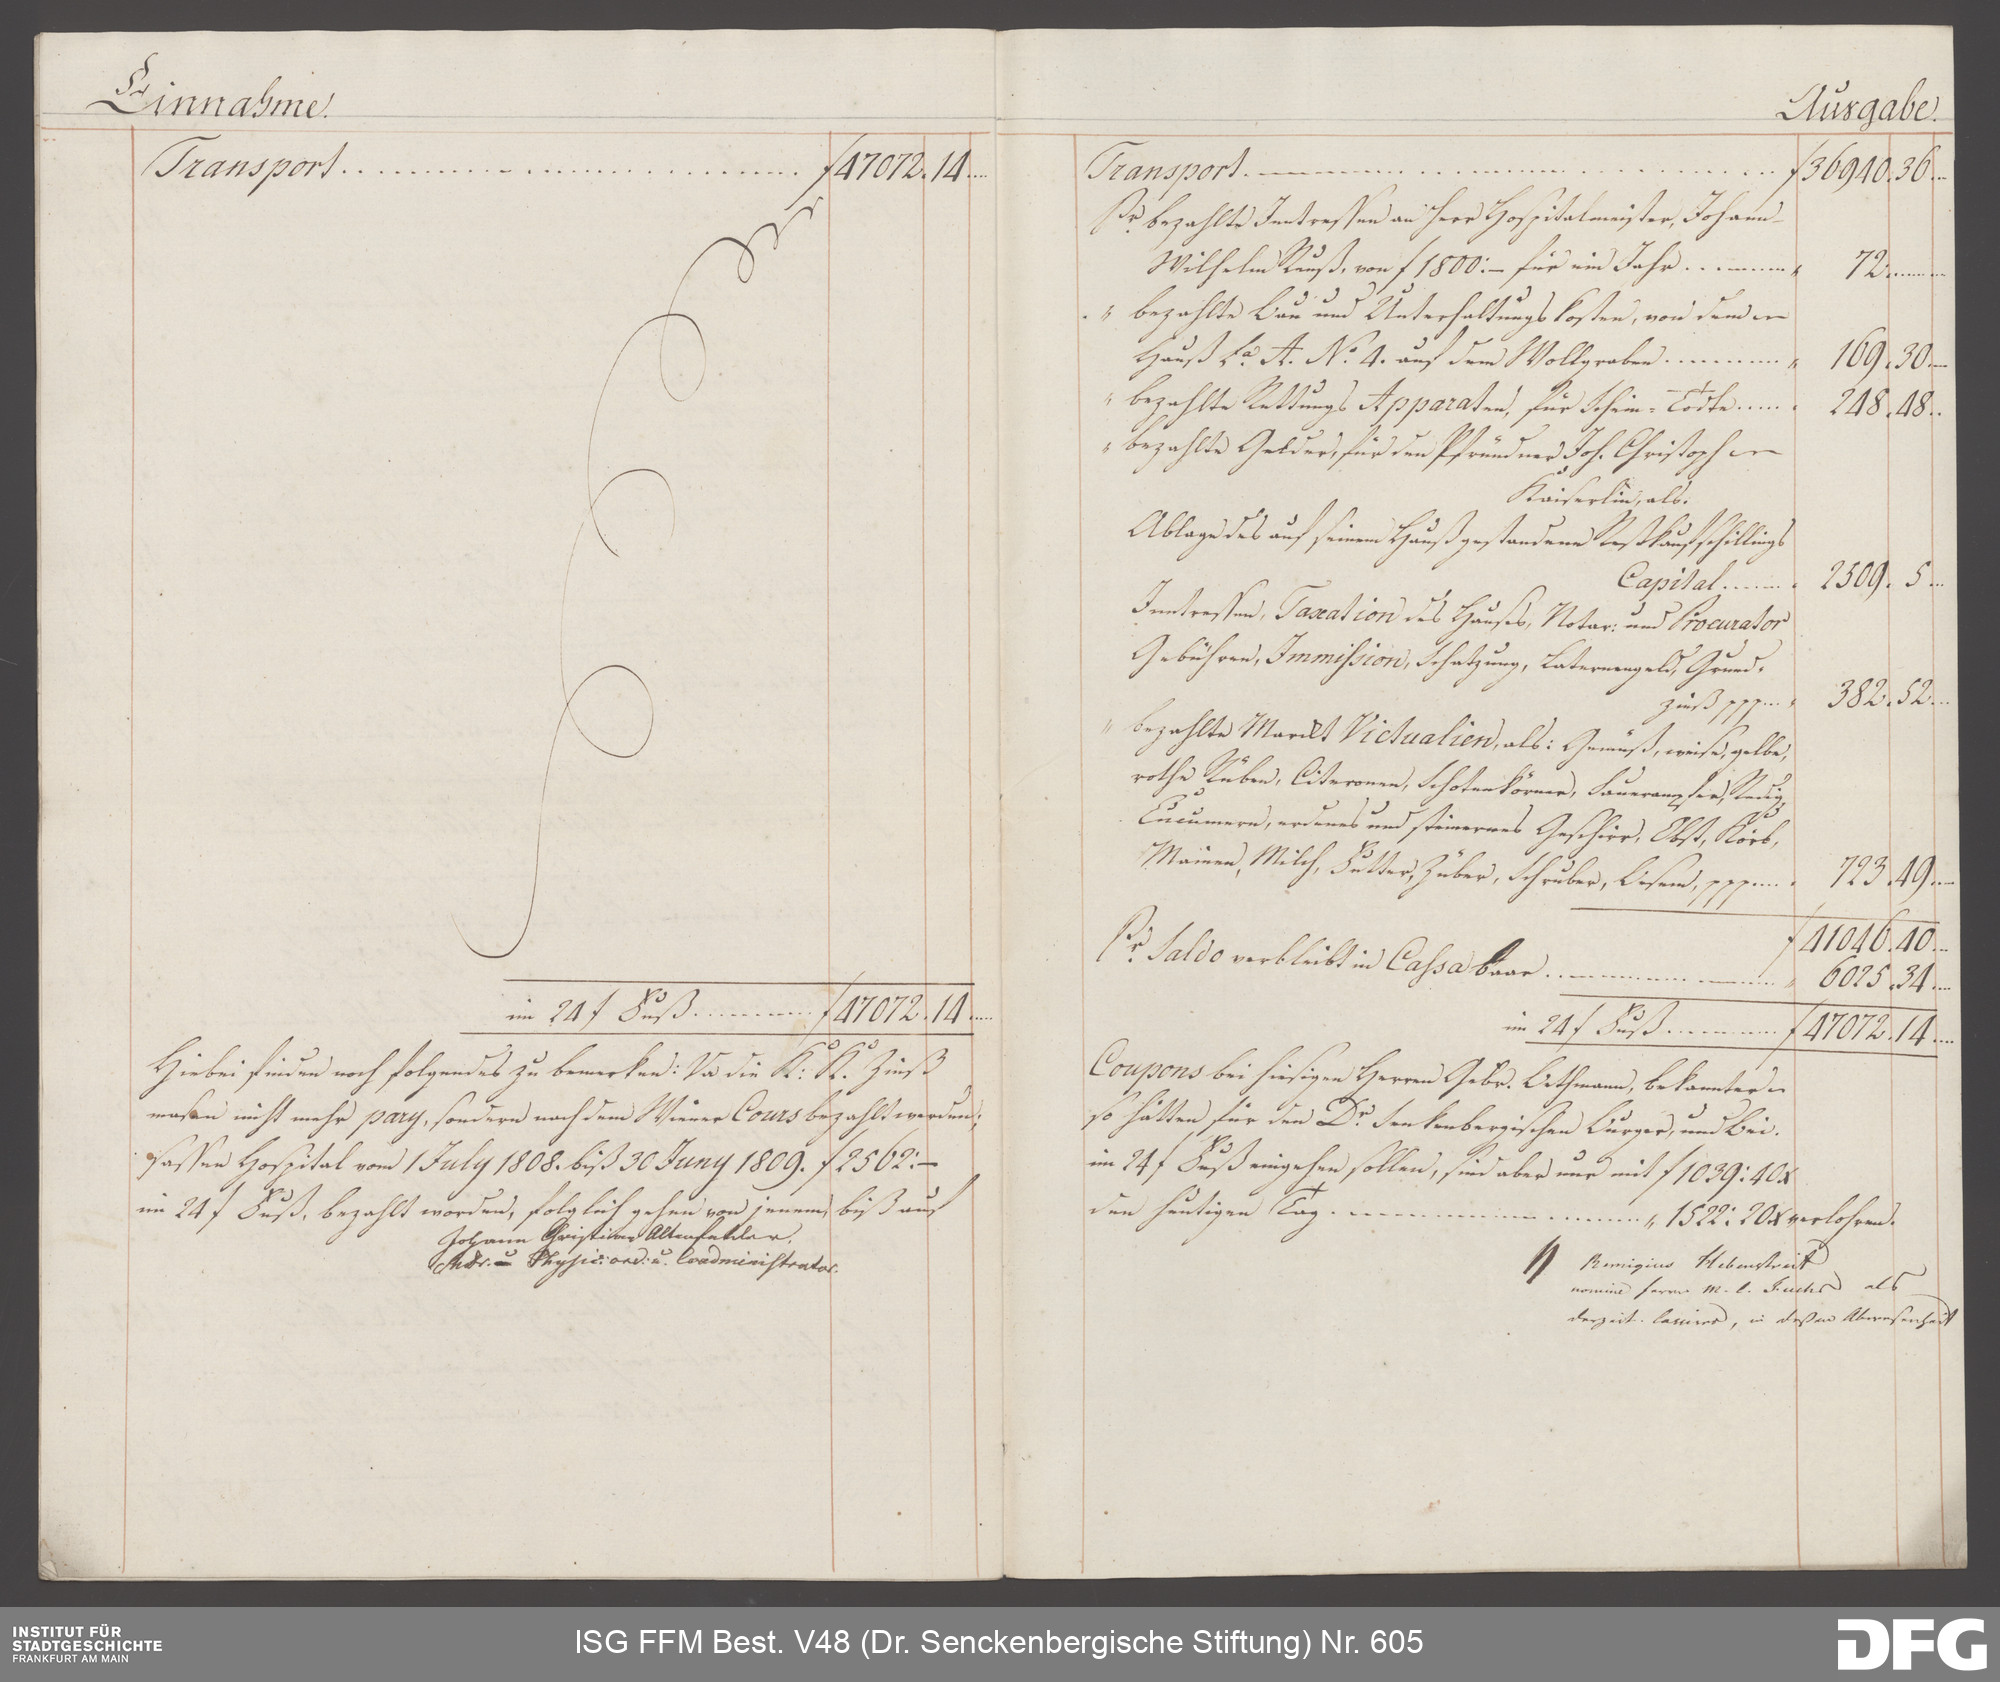 Einnahme.
Transport . . . . . . . . . . . . . . . . . . . . f 47072. 14. ...
im 24 f Fuß . . . . . . . . . f 47072. 14. ...
Hiebei finden noch folgendes zu bemerken: Da die K: K. Zinß
masen nicht mehr pary, sondern nach dem Wiener Cours bezahlt werden;
sassen Hospital vom 1 July 1808. biß 30 Juny 1809. f 2562:—
im 24 f Fuß, bezahlt worden, folglich gehen von jenem, biß auf
Johann Christian Altenfelder.
Mdr. u Physic: ord: u. Coadministrator.
Ausgabe.
Transport . . . . . . . . . . . . . . . . . . . . f 36940. 36. ...
Pr. bezahlte Intressen an Herr Hospitalmeister, Johann
Wilhelm Reuß, von f 1800:— für ein Jahr . . . . . . . " 72. ...
" bezahlte Bau und Unterhaltungs kosten, von dem
Hauß La. A. No. 4. auf dem Wollgraben . . . . . . . " 169. 30. ...
" bezahlte Rettungs Apparaten, für Schein-Todte . . . . " 248. 48. ..
" bezahlte Gelder, für den Pfründner Joh. Christoph
Kaiserlin, als:
Ablage des auf seinem Hauß gestandene Restkaufschillings
Capital . . . . . " 2509. 5. ...
Intressen, Taxation des Hauses, Notar: und Procurator
Gebühren, Immission, Schatzung, Laternengeld, Grund-
zinß ppp . . . " 382. 52. ...
" bezahlte Markt Victualien, als: Gemüß, weise, gelbe,
rothe Rüben, Citronen, Schotenkörner, Sauerampfer, Redig,
Cucumern, erdenes und steinernes Geschirr, Obst, Körb,
Mainen, Milch, Butter, Züber, Schruber, Besem, ppp . . . . " 723. 49. ...
f 41046. 40. ...
Pr. Saldo verbleibt in Cassa baar . . . . . . . . . . . . " 6025. 34. ...
im 24 f Fuß . . . . . . . . f 47072. 14. ...
Coupons bei hiesigen Herren Gebr. Bethmann, bekannter
so hätten für den Dr. Senkenbergischen Bürger, und Bei-
im 24 f Fuß eingehen sollen, sind aber nur mit f 1039: 40 x
den heutigen Tag . . . . . . . . . . . . . . . . " 1522: 20 x verlohren.
Remigius Hebenstreit
nomine Herrn M. C. Fuchs als
derzeit. Cassirer, in deßen Abwesenheit
INSTITUT FÜR
STADTGESCHICHTE
FRANKFURT AM MAIN
ISG FFM Best. V48 (Dr. Senckenbergische Stiftung) Nr. 605
DFG